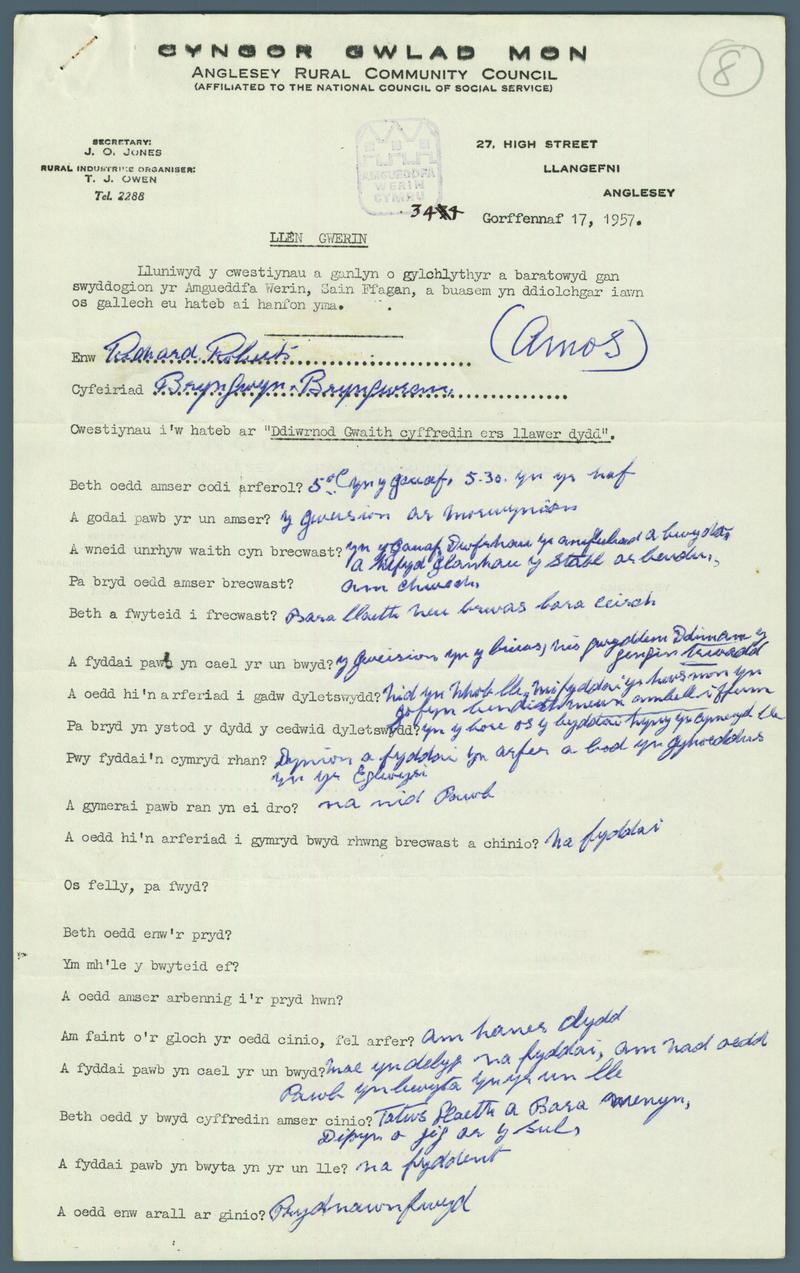 CYNGOR GWLAD MON
ANGLESEY RURAL COMMUNITY COUNCIL
(AFFILIATED TO THE NATIONAL COUNCIL OF SOCIAL SERVICE)
8
SECRETARY:
J. O. JONES
RURAL INDUSTRIES ORGANISER:
T. J. OWEN
Tel. 2288
AMGUEDDFA
WERIN
CYMRU
27, HIGH STREET
LLANGEFNI
ANGLESEY
Gorffennaf 17, 1957.
LLEN GWERIN
Lluniwyd y cwestiynau a ganlyn o gylchlythyr a baratowyd gan
swyddogion yr Amgueddfa Werin, Sain Ffagan, a buasem yn ddiolchgar iawn
os gallech eu hateb ai hanfon yma.
(Amos)
Enw Richard Roberts
Cyfeiriad Bryn Gwyn. Bryngwran
Cwestiynau i'w hateb ar "Ddiwrnod Gwaith cyffredin ers llawer dydd".
Beth oedd amser codi arferol? 5 yn y gauaf. 5-30. yn yr haf
A godai pawb yr un amser? y gweision ar morwynion
A wneid unrhyw waith cyn brecwast? yn y Gauaf Dwfrhau yr anifeiliaid a bwydo
a hefyd glanhau y Stabl ar beudu,
Pa bryd oedd amser brecwast? am chwech.
Beth a fwyteid i frecwast? Bara llaeth neu brwas bara ceirch
A fyddai pawb yn cael yr un bwyd? y Gweision yn y briws, nis gwyddem Ddim am y
gegin
A oedd hi'n arferiad i gadw dyletswydd? Nid yn mhob lle, mi fyddai yr hwsmon yn
gofyn bendith mewn ambell i fferm
Pa bryd yn ystod y dydd y cedwid dyletswydd? yn y bore os y byddai hynny yn cymeryd lle
Pwy fyddai'n cymryd rhan? Dynion a fyddai yn arfer a bod yn gyhoeddus
yn yr Eglwysi
A gymerai pawb ran yn ei dro? na nid Pawb
A oedd hi'n arferiad i gymryd bwyd rhwng brecwast a chinio? Na fyddai
Os felly, pa fwyd?
Beth oedd enw'r pryd?
Ym mh'le y bwyteid ef?
A oedd amser arbennig i'r pryd hwn?
Am faint o'r gloch yr oedd cinio, fel arfer? am haner dydd
A fyddai pawb yn cael yr un bwyd? Mae yn debyg na fyddai, am nad oedd
Pawb yn bwyta yn yr un lle
Beth oedd y bwyd cyffredin amser cinio? Tatws llaeth a Bara menyn,
Dipyn o gig ar y Sul,
A fyddai pawb yn bwyta yn yr un lle? na fyddent
A oedd enw arall ar ginio? Prydnawnfwyd